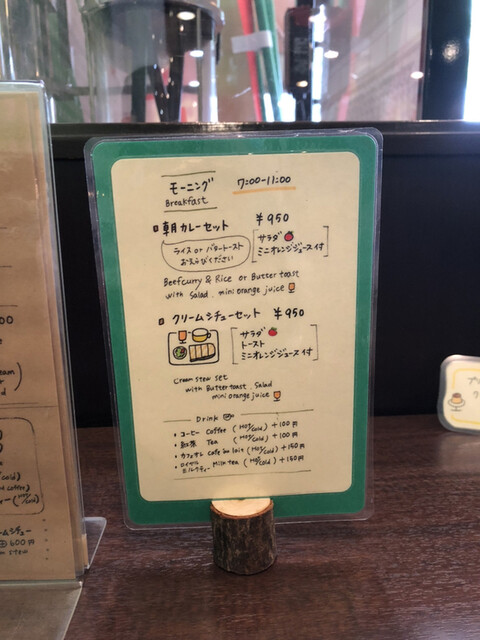 モーニング 7:00-11:00
Breakfast
朝カレーセット ¥950
ライス or バタートースト
お えらびください
サラダ
ミニオレンジジュース付
Beefcurry & Rice or Butter toast
with Salad. mini orange juice
クリームシチューセット ¥950
サラダ
トースト
ミニオレンジジュース付
Cream stew set
with Butter toast. Salad
mini orange juice
Drink
・コーヒー Coffee (Hot/Cold) +100円
・紅茶 Tea (Hot/Cold) +100円
・カフェオレ Cafe au lait (Hot/Cold) +150円
・ロイヤルミルクティー Milk tea (Hot/Cold) +150円
600円